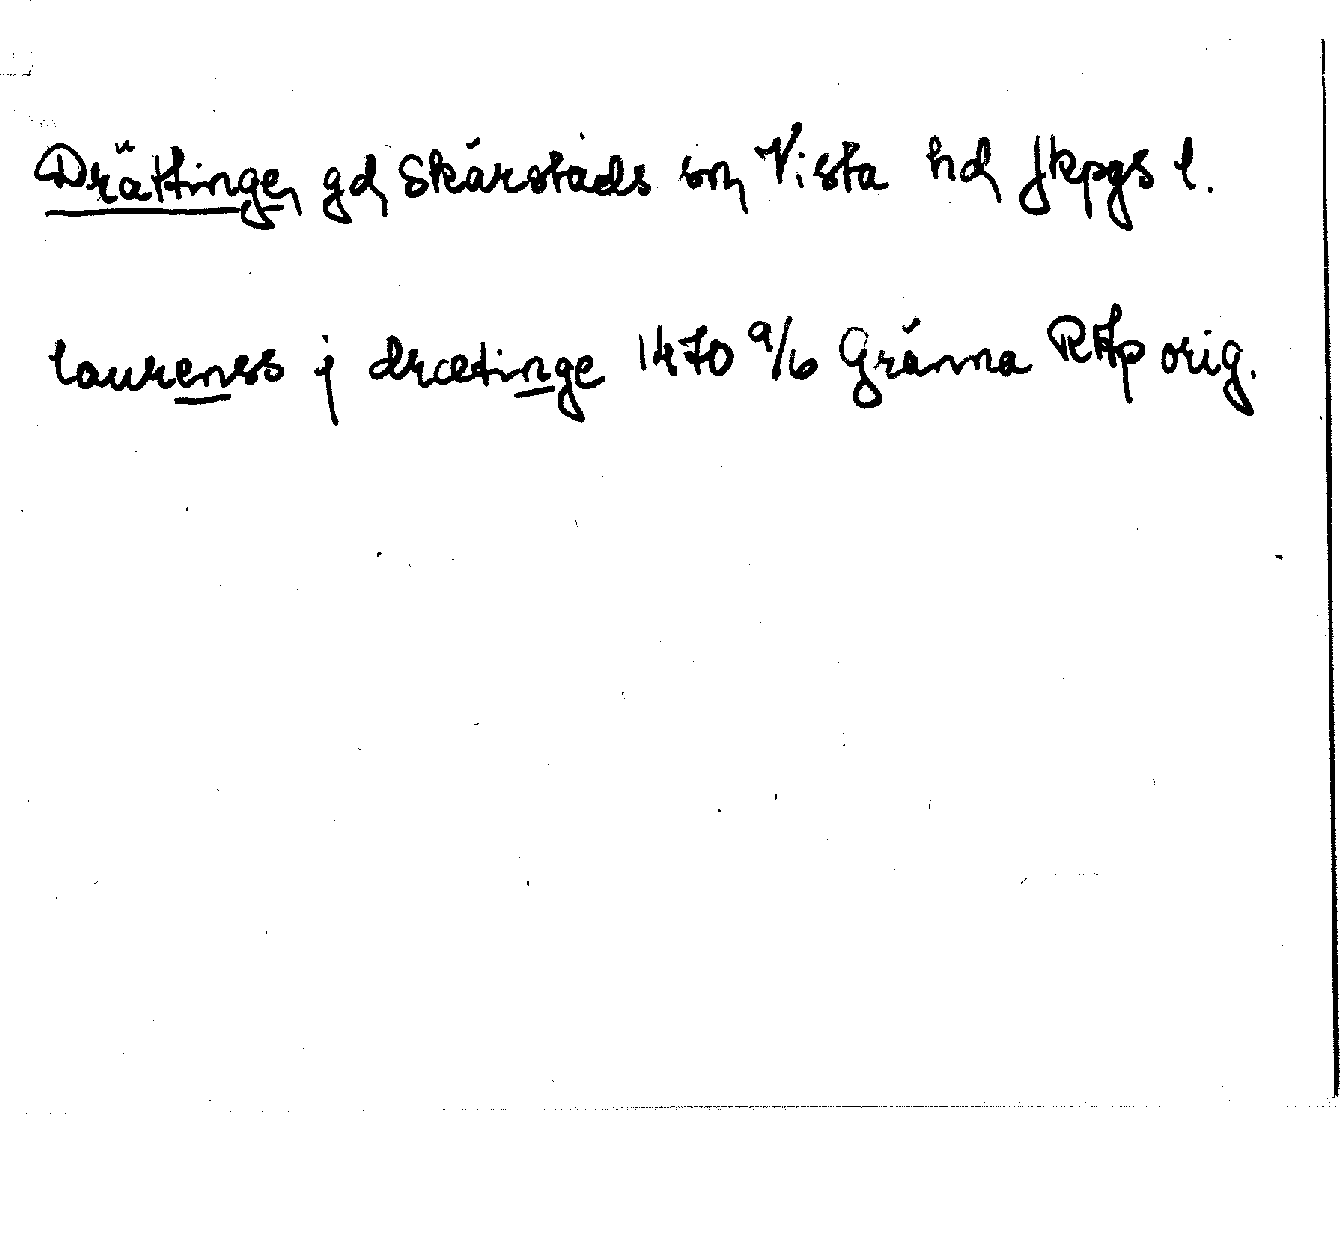 Drättinge gd Skärstads sn Vista hd Jkpgs l.
laurenss j drætinge 1470 9/6 Gränna RAp orig.